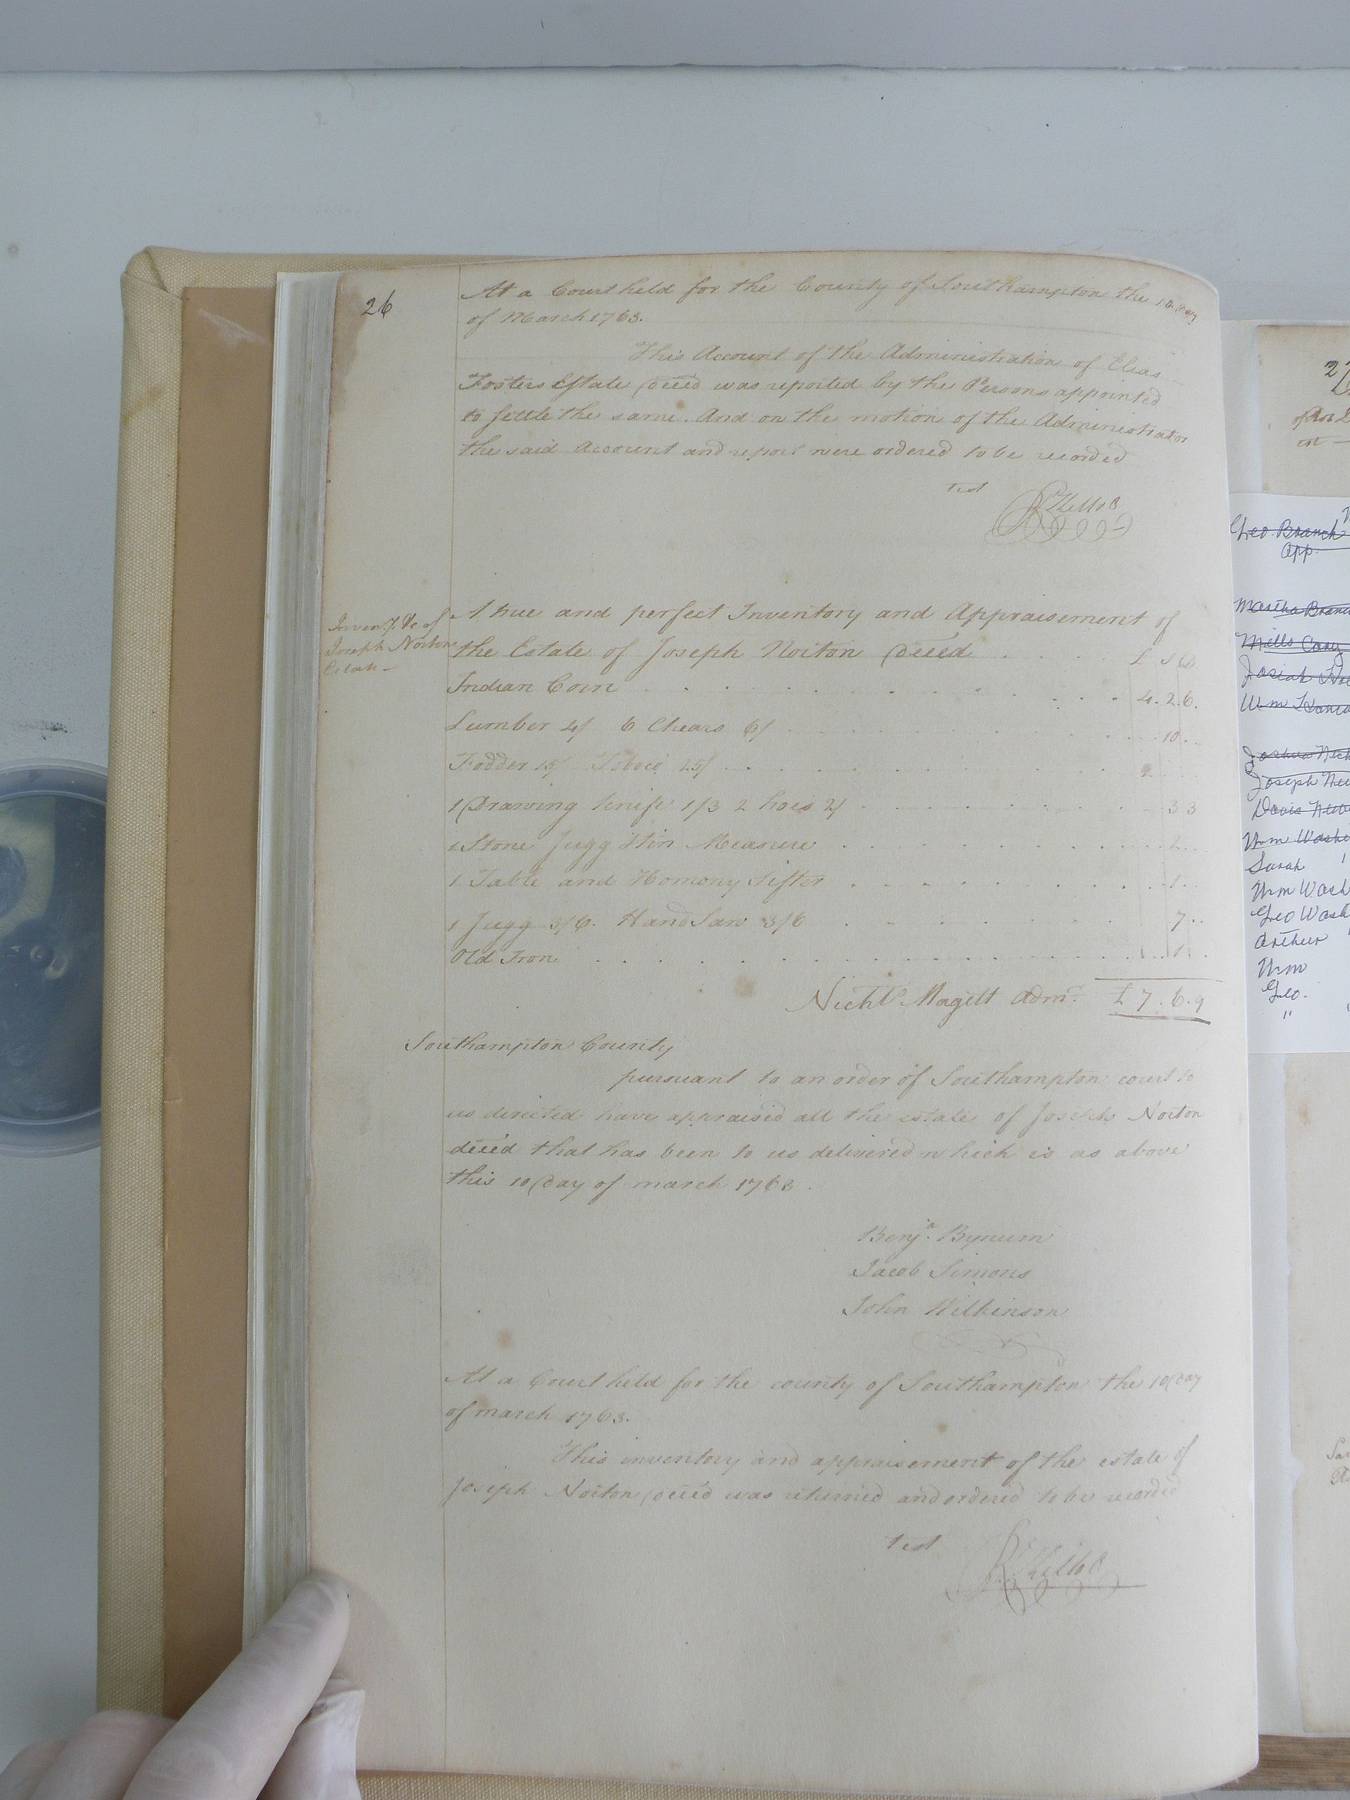 26
At a Court held for the County of Southampton the 10 Day
of March 1763.
This Account of the Administration of Elias
Fosters Estate Deced was reported by the Persons appointed
to settle the same. And on the motion of the Administrator
the said Account and report were ordered to be recorded
Test
R Kello
Inven.y &c of
Joseph Norton
Estate
A true and perfect Inventory and Appraisement of
the Estate of Joseph Norton Deced . . . . £ S D.
Indian Corn . . . . . . . . . . . . . 4.2.6.
Lumber 4/ 6 Chears 6/ . . . . . . . . . 10..
Fodder 15/ Toboco 25/ . . . . . . . . . 2
1 Drawing Knife 1/3 2 hoes 2/ . . . . . . . . 3 3
1 Stone Jugg &tin Measure . . . . . . . . 2..
1 Table and Homony Sifter . . . . . . . . 1..
1 Jugg 3/6. Hand Saw 3/6 . . . . . . . 7..
Old Iron . . . . . . . . . . . . . 1.
Nichls Magett Admr. £7.6.9
Southampton County
pursuant to an order of Southampton court to
us directed have appraised all the estate of Joseph Norton
deced that has been to us delivered which is as above
this 10 Day of march 1763.
Benja. Bynum
Jacob Simons
John Wilkinson
At a Court held for the county of Southampton the 10 Day
of march 1763.
This inventory and appraisement of the estate of
Joseph Norton Deced was returned and ordered to be recorded
Test
R Kello
Geo. Branch
App.
Martha Branch
Mills
Josiah
Wm
Joshua
Joseph
Davis
Wm
Sarah
Wm Wash
Geo Wash
Arthur
Wm
Geo.
"